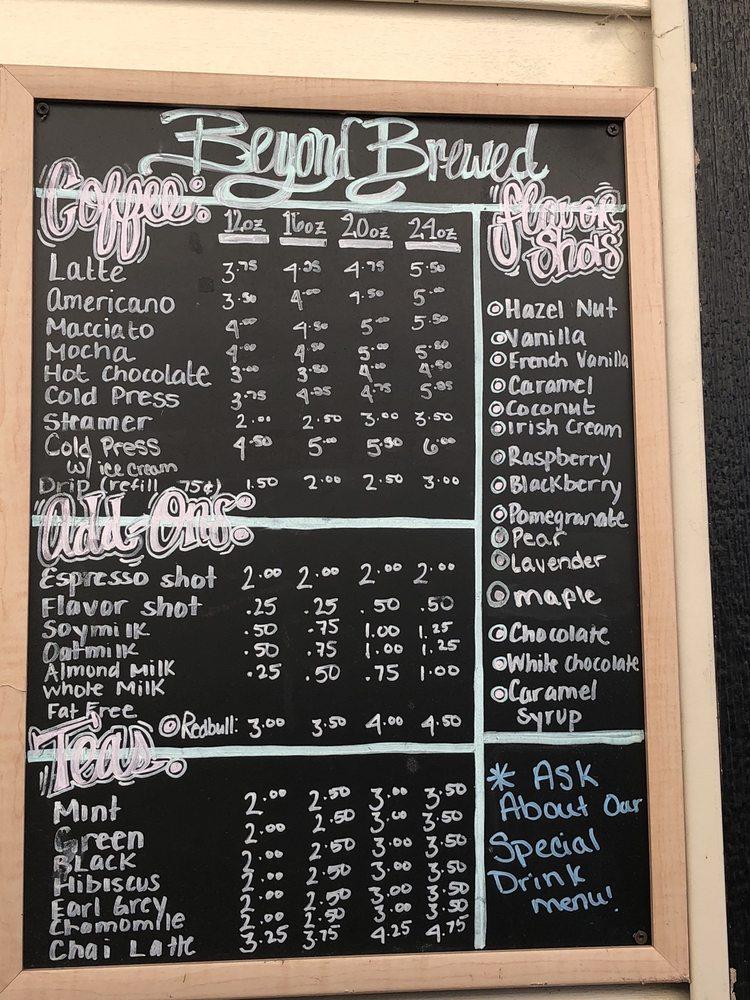 Beyond Brewed
Coffee:
12oz 16oz 20oz 24oz
Latte 3.75 4.25 4.75 5.50
Americano 3.50 4.00 4.50 5.00
Macciato 4.00 4.50 5.00 5.50
Mocha 4.00 4.50 5.00 5.50
Hot Chocolate 3.00 3.50 4.00 4.50
Cold Press 3.75 4.25 4.75 5.25
Steamer 2.00 2.50 3.00 3.50
Cold Press 4.50 5.00 5.50 6.00
w/ ice cream
Drip (refill .75¢) 1.50 2.00 2.50 3.00
Add-Ons:
Espresso shot 2.00 2.00 2.00 2.00
Flavor shot .25 .25 .50 .50
Soymilk .50 .75 1.00 1.25
Oatmilk .50 .75 1.00 1.25
Almond Milk .25 .50 .75 1.00
Whole Milk
Fat Free
Redbull: 3.00 3.50 4.00 4.50
Teas:
Mint 2.00 2.50 3.00 3.50
Green 2.00 2.50 3.00 3.50
BLACK 2.00 2.50 3.00 3.50
Hibiscus 2.00 2.50 3.00 3.50
Earl Grey 2.00 2.50 3.00 3.50
Chamomile 2.00 2.50 3.00 3.50
Chai Latte 3.25 3.75 4.25 4.75
Flavor
Shots
Hazel Nut
Vanilla
French Vanilla
Caramel
Coconut
Irish Cream
Raspberry
Blackberry
Pomegranate
Pear
Lavender
maple
Chocolate
White chocolate
Caramel
Syrup
* ASK
About Our
Special
Drink
menu!